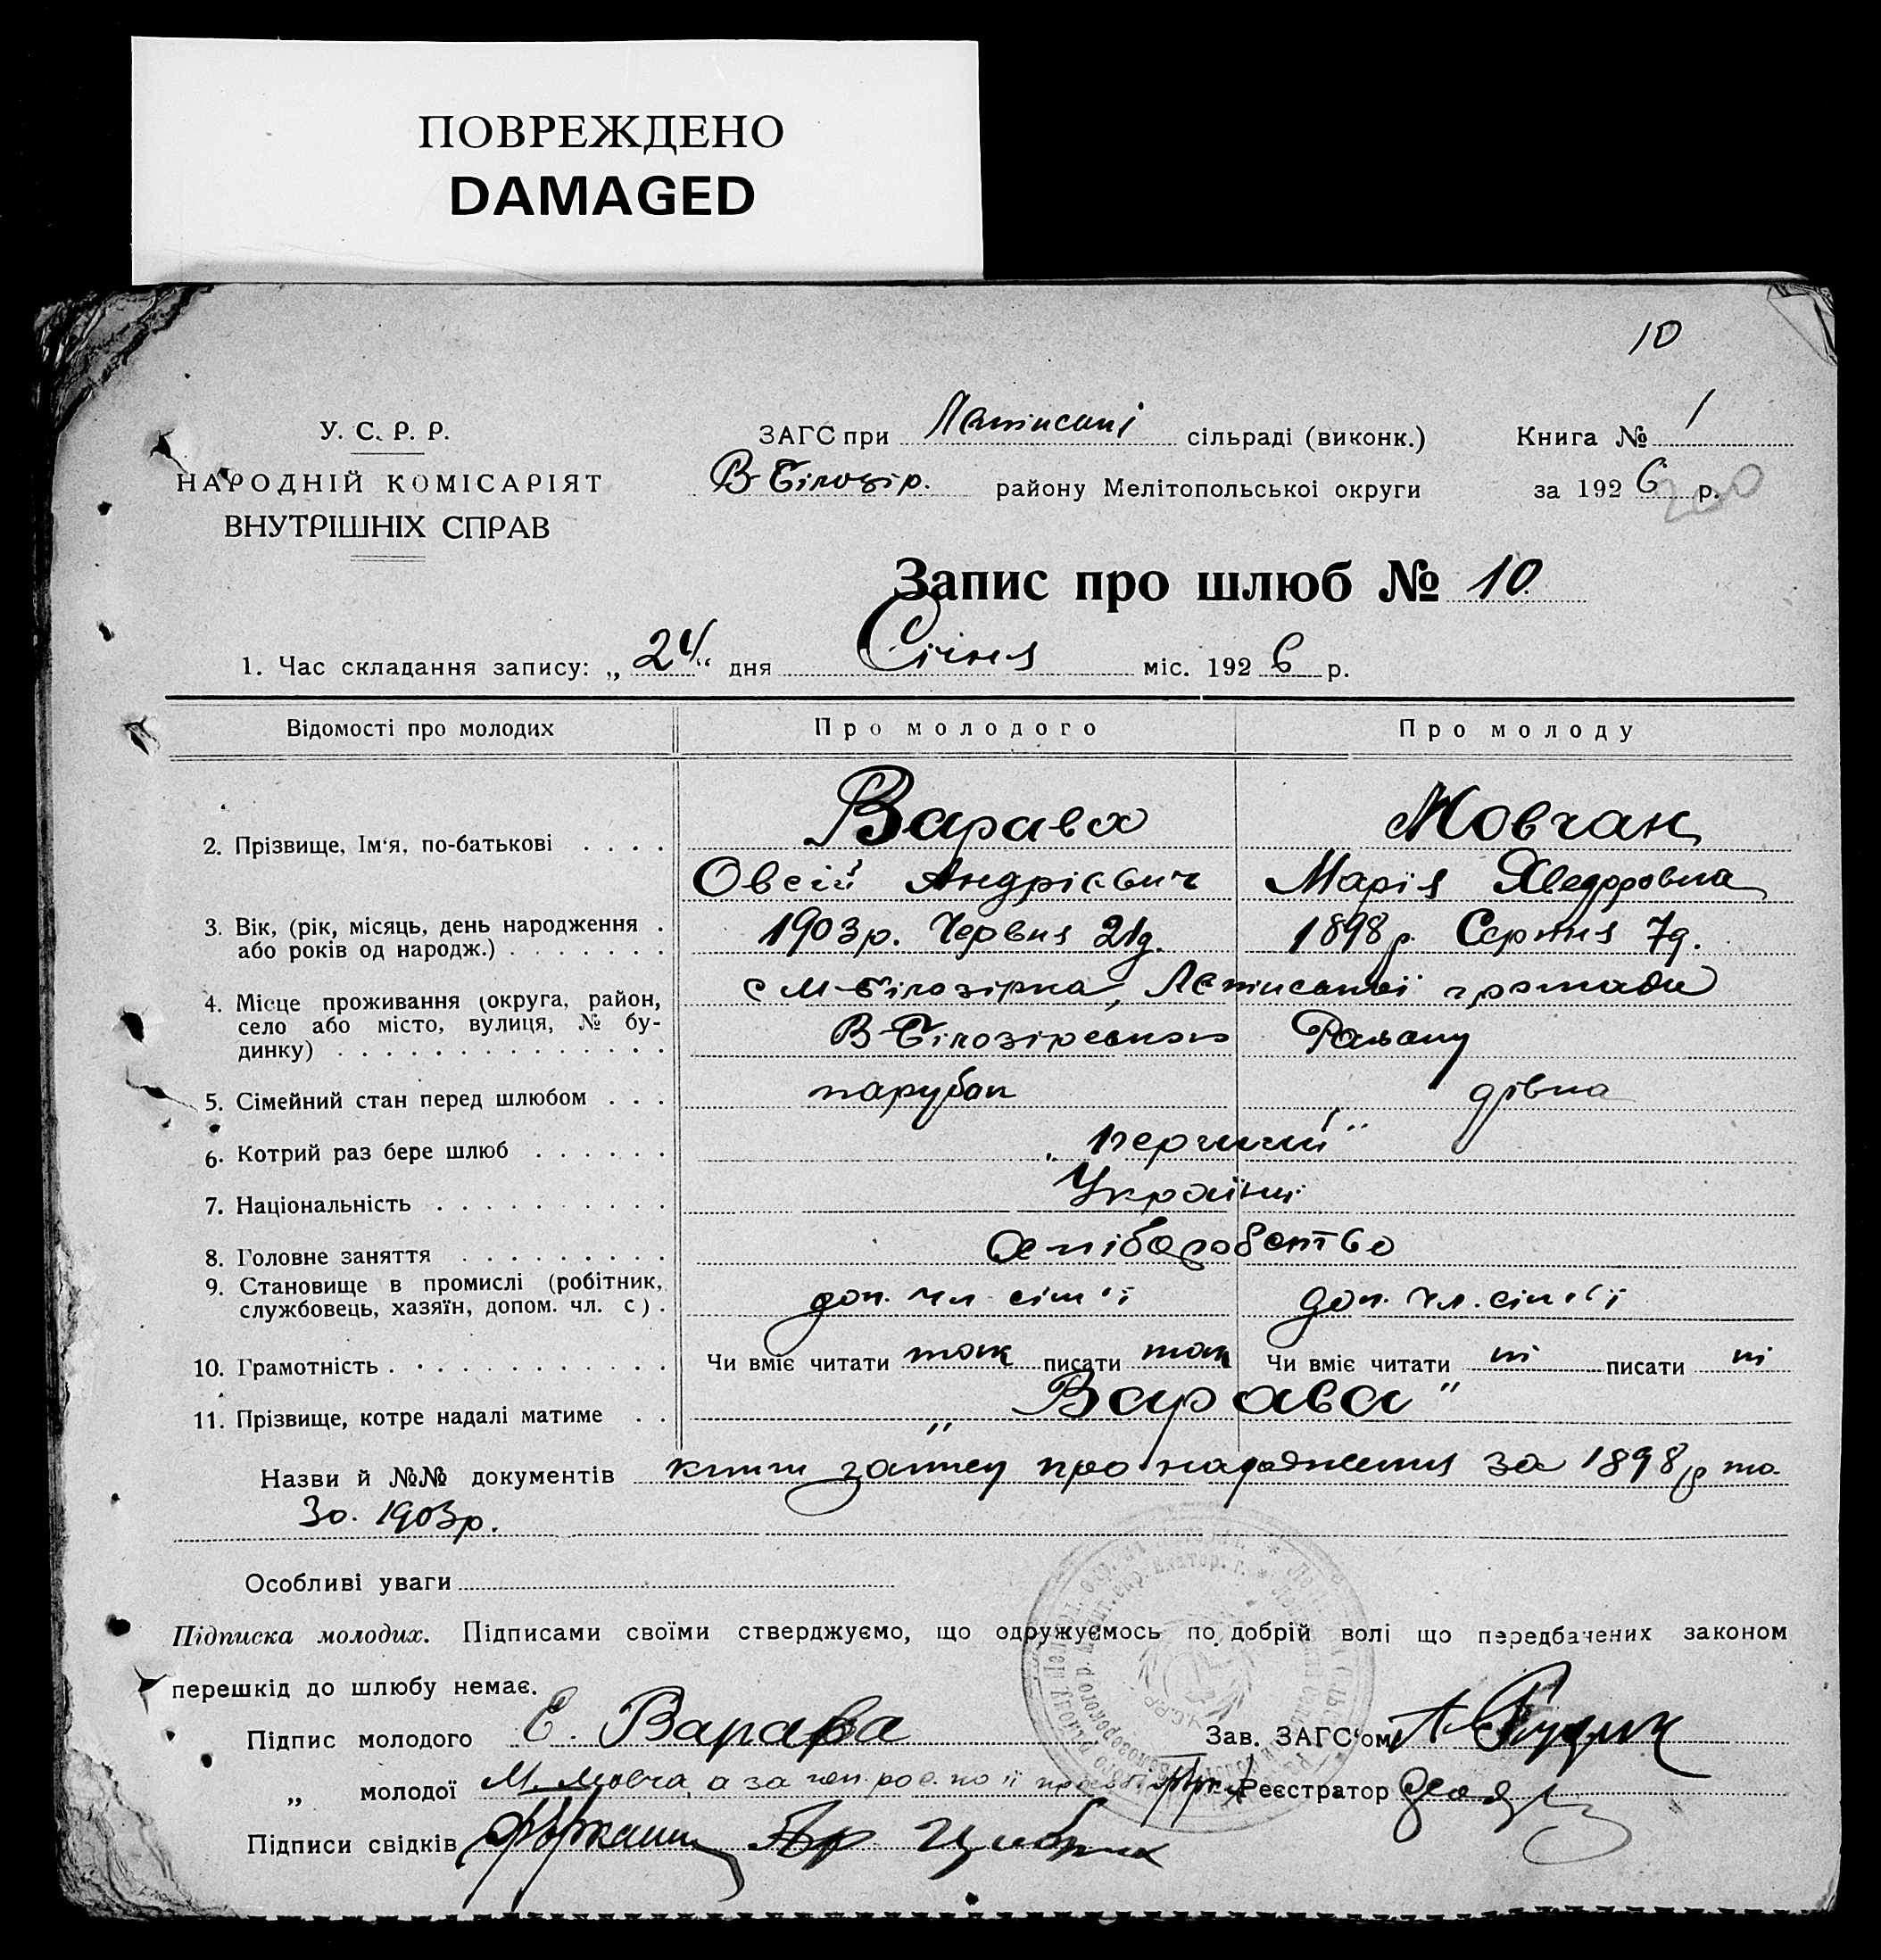 ПОВРЕЖДЕНО
DAMAGED
10
У. С. Р. Р.
НАРОДНІЙ КОМІСАРІЯТ
ВНУТРІШНІХ СПРАВ
ЗАГС при сільраді (виконк.) Книга № 1
В-Білозір. району Мелітопольської округи за 1926 р.
200
Запис про шлюб № 10
1. Час складання запису: „24“ дня Січня міс. 1926 р.
Відомості про молодих Про молодого Про молоду
2. Прізвище, Ім'я, по-батькові . . . . Варава Мовчан
Овсій Андрієвич Марія Хведоровна
3. Вік, (рік, місяць, день народження . або років од народж.) . . . . . . . 1903р. Червня 21д. 1898р. Серпня 7д.
4. Місце проживання (округа, район, село або місто, вулиця, № будинку) . . . . . . . . . . . . . . с М-Білозірка, громади
В-Білозірського Району
5. Сімейний стан перед шлюбом . . . парубок дівка
6. Котрий раз бере шлюб . . . . . . „перший“
7. Національність . . . . . . . . . . Українці
8. Головне заняття . . . . . . . . . хліборобство
9. Становище в промислі (робітник, службовець, хазяїн, допом. чл. с) . доп. чл сім'ї доп. чл. сім'ї
10. Грамотність . . . . . . . . . . . Чи вміє читати так писати так Чи вміє читати ні писати ні
11. Прізвище, котре надалі матиме . . „Варава“
Назви й №№ документів книги запису про народження за 1898р та
за 1903р.
Особливі уваги
Підписка молодих. Підписами своїми стверджуємо, що одружуємось по добрій волі що передбачених законом
перешкід до шлюбу немає.
Підпис молодого Є. Варава Зав. ЗАГС'ом
„ молодої М. Мовча, а за неп по її Реєстратор
Підписи свідків